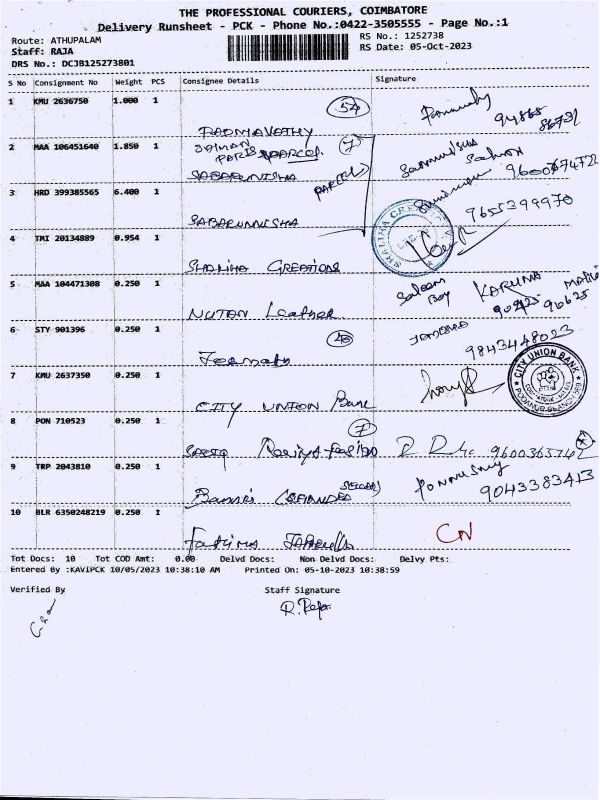 THE PROFESSIONAL COURIERS, COIMBATORE
Delivery Runsheet - PCK - Phone No.:0422-3505555 - Page No.:1
Route: ATHUPALAM RS No.: 1252738
Staff: RAJA RS Date: 05-Oct-2023
DRS No.: DCJB125273801
S No Consignment No Weight PCS Consignee Details Signature
1 KMU 2636750 1.000 1 54
PADMAVATHY
2 MAA 106451640 1.850 1 7
PARIS
SABARUNISHA 960067472
3 HRD 399385565 6.400 1 PARCEL
SABARUNNISHA 9655399970
4 TMI 20134889 0.954 1 SHALIHA CREATIONS
SHALIHA CREATIONS
5 MAA 104471308 0.250 1 Saleem Boy KARUNA
NUTAN Leather
6 STY 901396 0.250 1 40
9843448023
7 KMU 2637350 0.250 1 CITY UNION BANK
CITY UNION Bank
8 PON 710523 0.250 1 7
9 TRP 2043810 0.250 1 Ponnusmy
9043383413
10 BLR 6350248219 0.250 1 CN
Fatima
Tot Docs: 10 Tot COD Amt: 0.00 Delvd Docs: Non Delvd Docs: Delvy Pts:
Entered By :KAVIPCK 10/05/2023 10:38:10 AM Printed On: 05-10-2023 10:38:59
Verified By Staff Signature
R. Raja